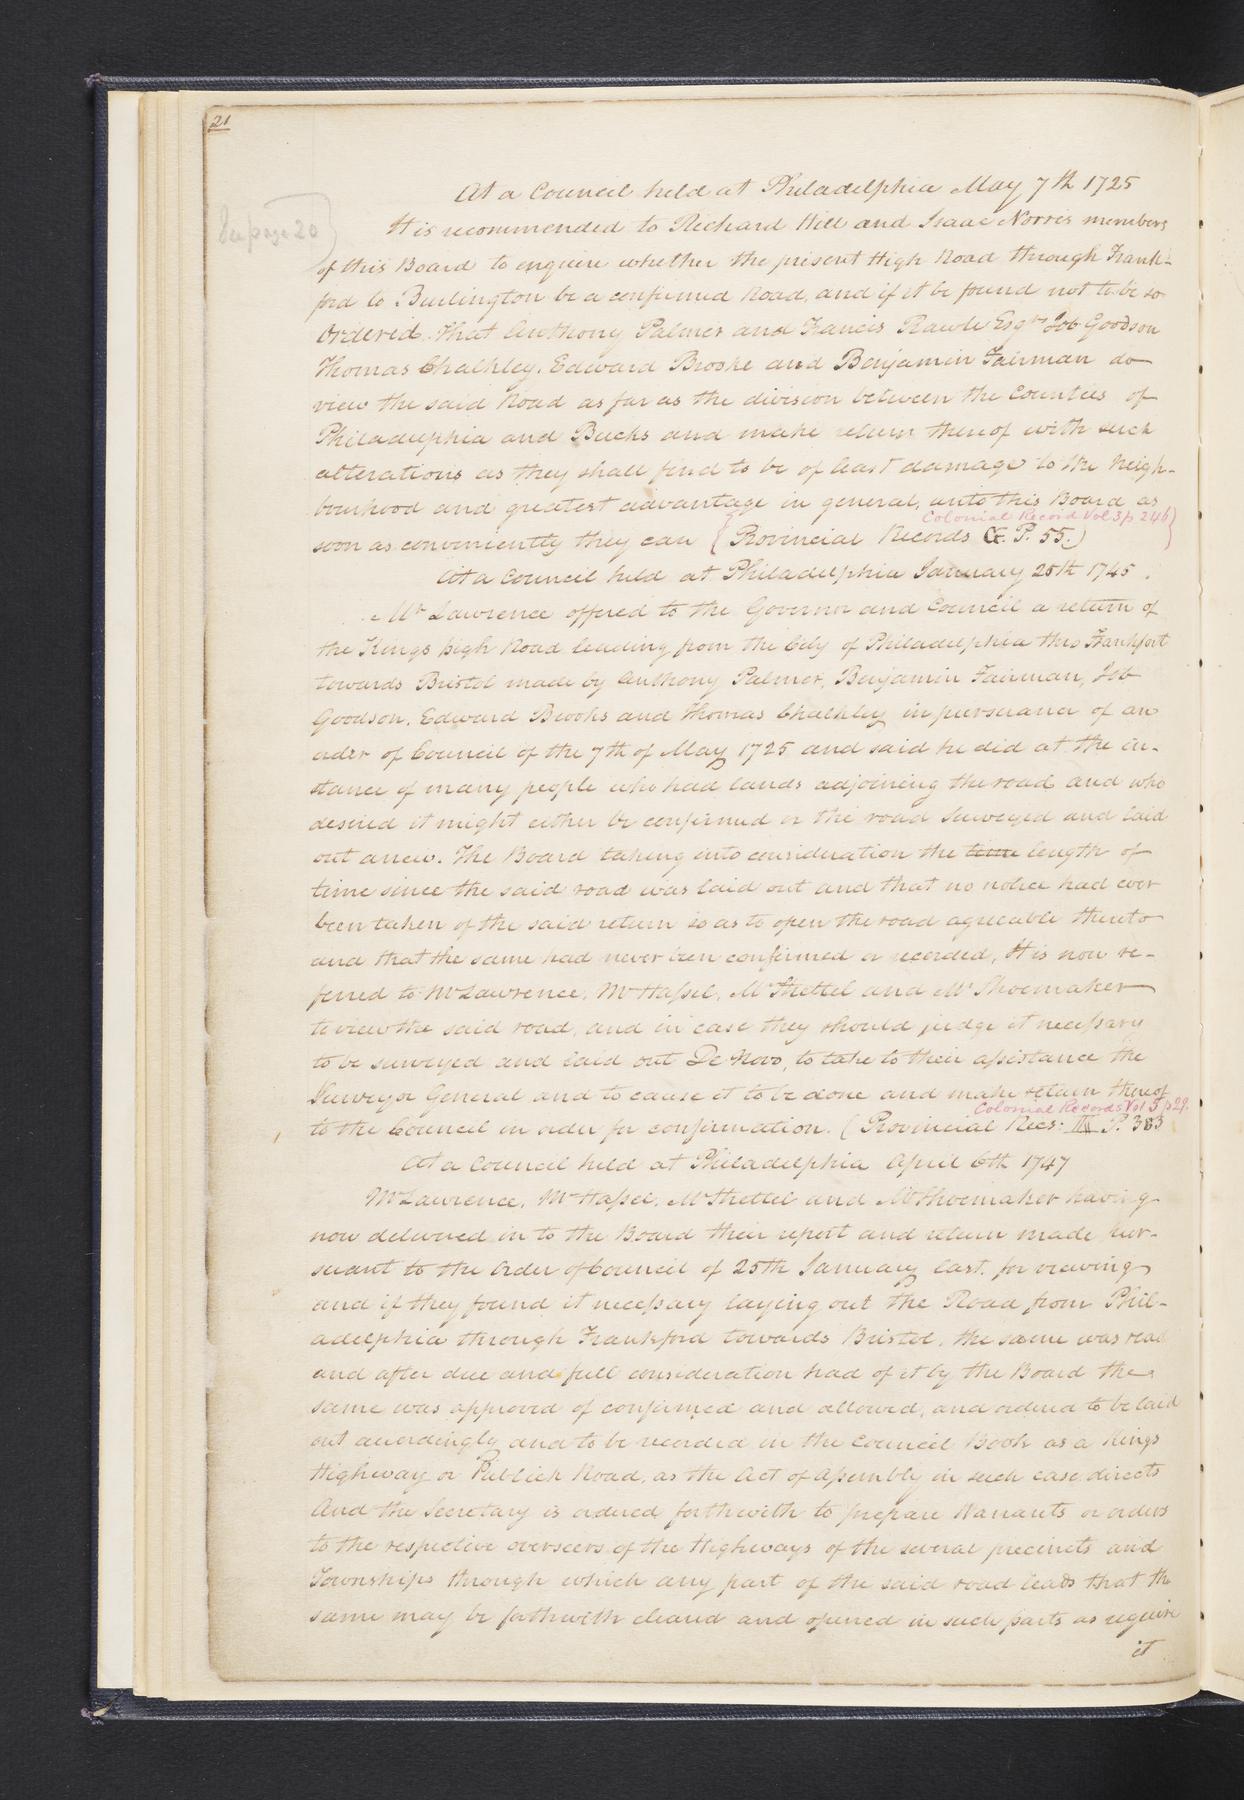 21
See page 20
At a Council held at Philadelphia May 7th 1725
It is recommended to Richard Hill and Isaac Norris members
of this Board to enquire whether the present High Road through Frank-
ford to Burlington be a confirmed Road, and if it be found not to be so
Ordered. that Anthony Palmer and Francis Rawle Esqrs Job Goodson
Thomas Chalkley. Edward Brooke and Benjamin Fairman do
view the said Road as far as the division between the Counties of
Philadelphia and Bucks and make return thereof with such
alterations as they shall find to be of least damage to the Neigh-
bourhood and greatest advantage in general, unto this Board as
Colonial Record Vol 3 p 246
soon as conveniently they can (Provincial Records G. P. 55.)
At a Council held at Philadelphia January 25th 1745.
Mr Lawrence offered to the Governor and Council a return of
the Kings high Road leading from the City of Philadelphia thro Frankfort
towards Bristol made by Anthony Palmer, Benjamin Fairman, Job
Goodson. Edward Brooks and Thomas Chalkley in pursuance of an
order of Council of the 7th of May 1725 and said he did at the in-
stance of many people who had lands adjoining the road and who
desired it might either be confirmed or the road Surveyed and laid
out anew. The Board taking into consideration the time length of
time since the said road was laid out and that no notice had ever
been taken of the said return so as to open the road agreeable thereto
and that the same had never been confirmed or recorded, It is now re-
ferred to Mr Lawrence, Mr Hassel, Mr Strettel and Mr Shoemaker
to view the said road, and in case they should judge it necessary
to be surveyed and laid out De Novo, to take to their assistance the
Surveyor General and to cause it to be done and make return thereof
Colonial Records Vol 5 p 29.
to the Council in order for confirmation. (Provincial Recs: P. 383
At a Council held at Philadelphia April 6th 1747
Mr Lawrence, Mr Hassel, Mr Strettel and Mr Shoemaker having
now delivered in to the Board their report and return made pur-
suant to the Order of Council of 25th January last. for viewing
and if they found it necessary laying out the Road from Phil-
adelphia through Frankford towards Bristol, the same was read
and after due and full consideration had of it by the Board the
same was approved of confirmed and allowed, and ordered to be laid
out accordingly and to be recorded in the Council Book as a Kings
Highway or Publick Road, as the Act of Assembly in such case directs
And the Secretary is ordered forthwith to prepare Warrants or orders
to the respective overseers of the Highways of the several precincts and
Townships through which any part of the said road leads that the
same may be forthwith cleared and opened in such parts as require
it